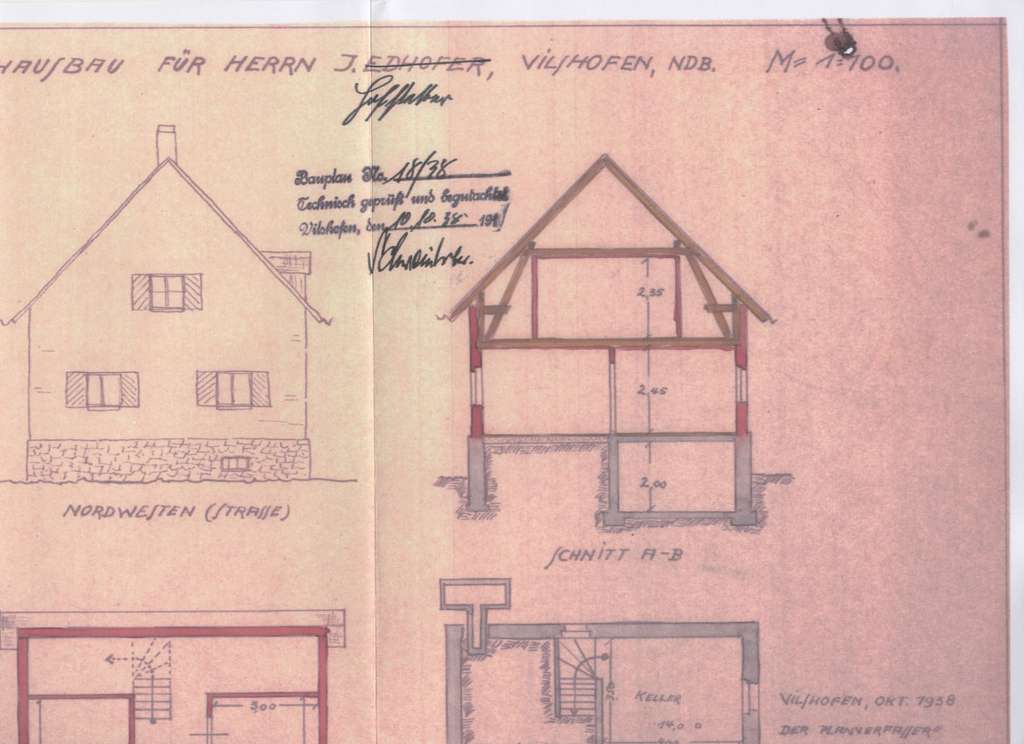 HAUSBAU FÜR HERRN J. EDHOFER, VILSHOFEN, NDB. M= 1:100.
Bauplan No. 18/38
Technisch geprüft und begutachtet
Vilshofen, den 10.10.38 19
2,35
2,45
2,00
NORDWESTEN (STRASSE)
SCHNITT A-B
3,00
KELLER
14,0
VILSHOFEN, OKT. 1938
DER PLANVERFASSER: